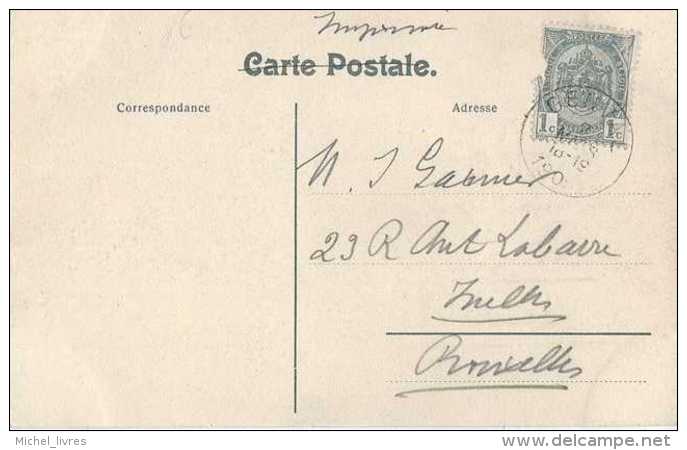 Imprimé
Carte Postale.
Correspondance
Adresse
1c 1c
M. J
29 R Ant Labarre
Ixelles
Bruxelles
Michel_livres
delcampe.net